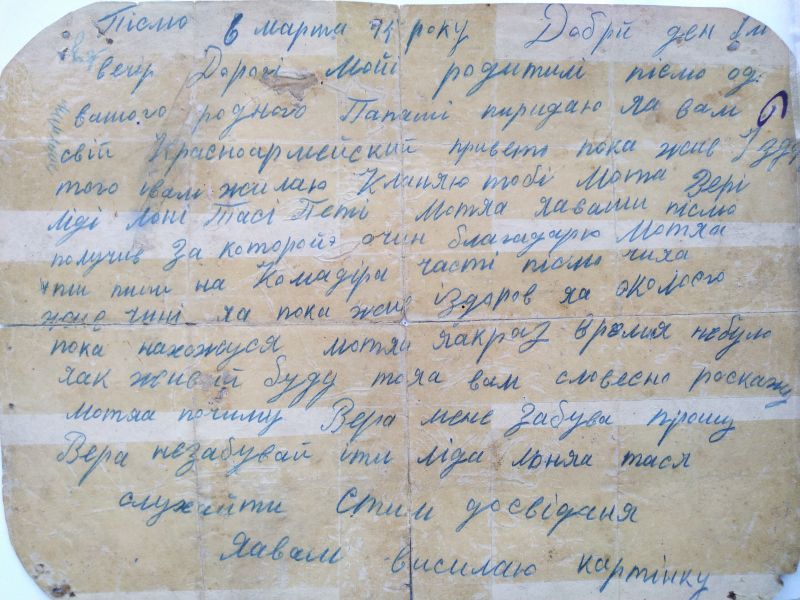 Пісмо 6 марта 45 року Добрй ден Ім
вечр Дорогі Мойі родитилі пісмо од
вашого родного Папаші пиридаю яа вам
свій Красноармейский приветь пока жив І здр
того івам жилаю Кланяю тобі Мотя Вері
ліді Льоні Тасі Петі Мотяа яаваши пісмо
получив За которойэ очин благадарю Мотяа
ти пиши на Комадіра часті пісмо
яа пока жив іздоров яа
пока нахожуся мотяа яакраз времня небуло
яак живій буду тояа вам словесно роскажу
мотяа почиму Вера мене забува прошу
Вера незабувай іти ліда льоняа тася
слухайти Стим досвіданя
Яавам висилаю картінку